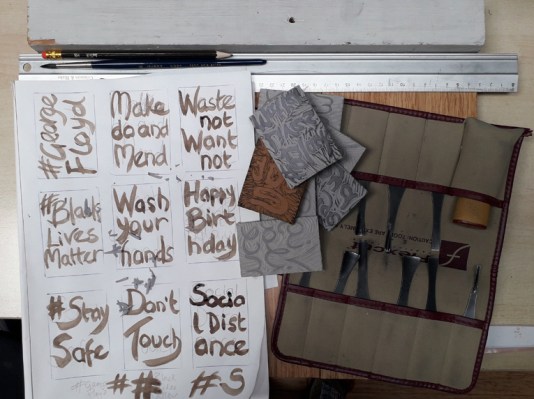 #George
Floyd
Make
do and
Mend
Waste
not
Want
not
#Black
Lives
Matter
Wash
your
hands
Happy
Birt
hday
#Stay
Safe
Don't
Touch
Socia
l Dist
ance
##
#S